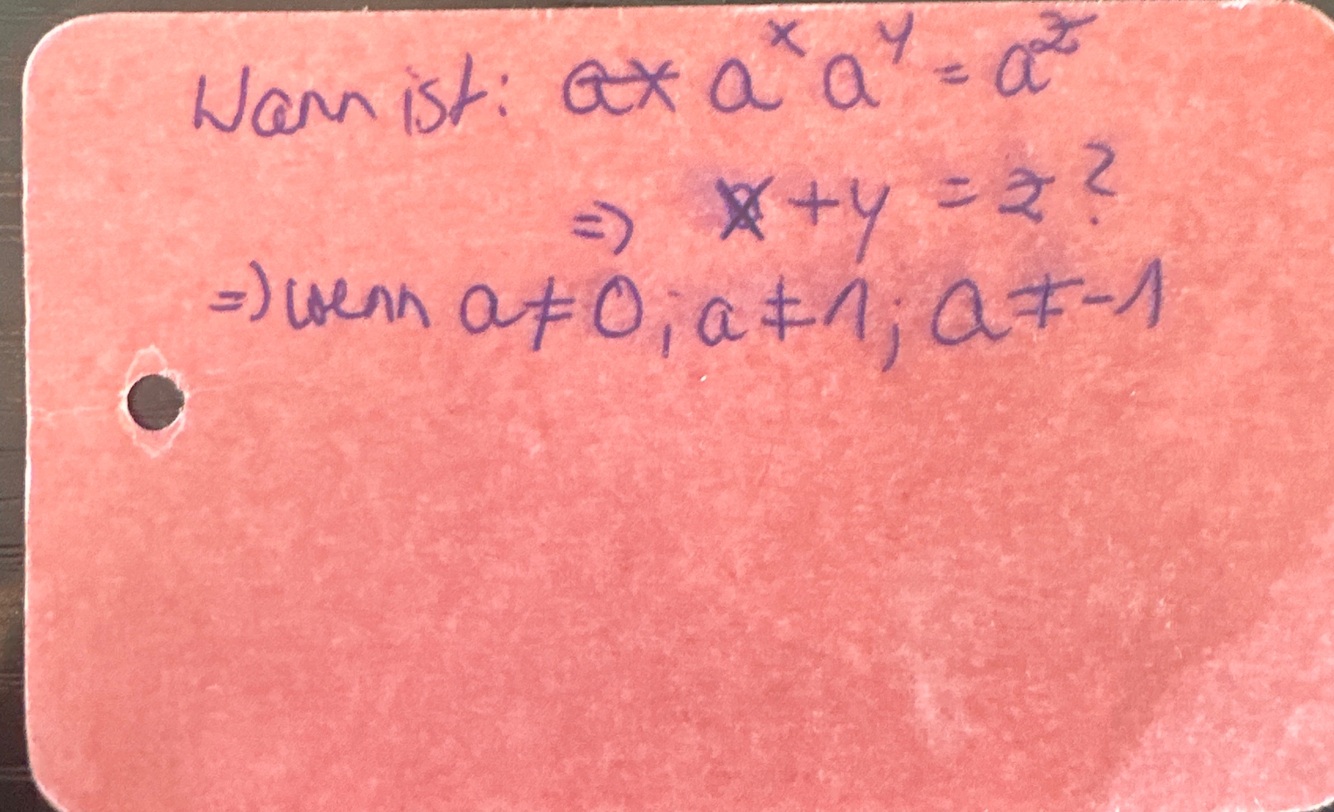 Wann ist: a^x a^y = a^z
=> x + y = z ?
=> wenn a ≠ 0; a ≠ 1; a ≠ -1